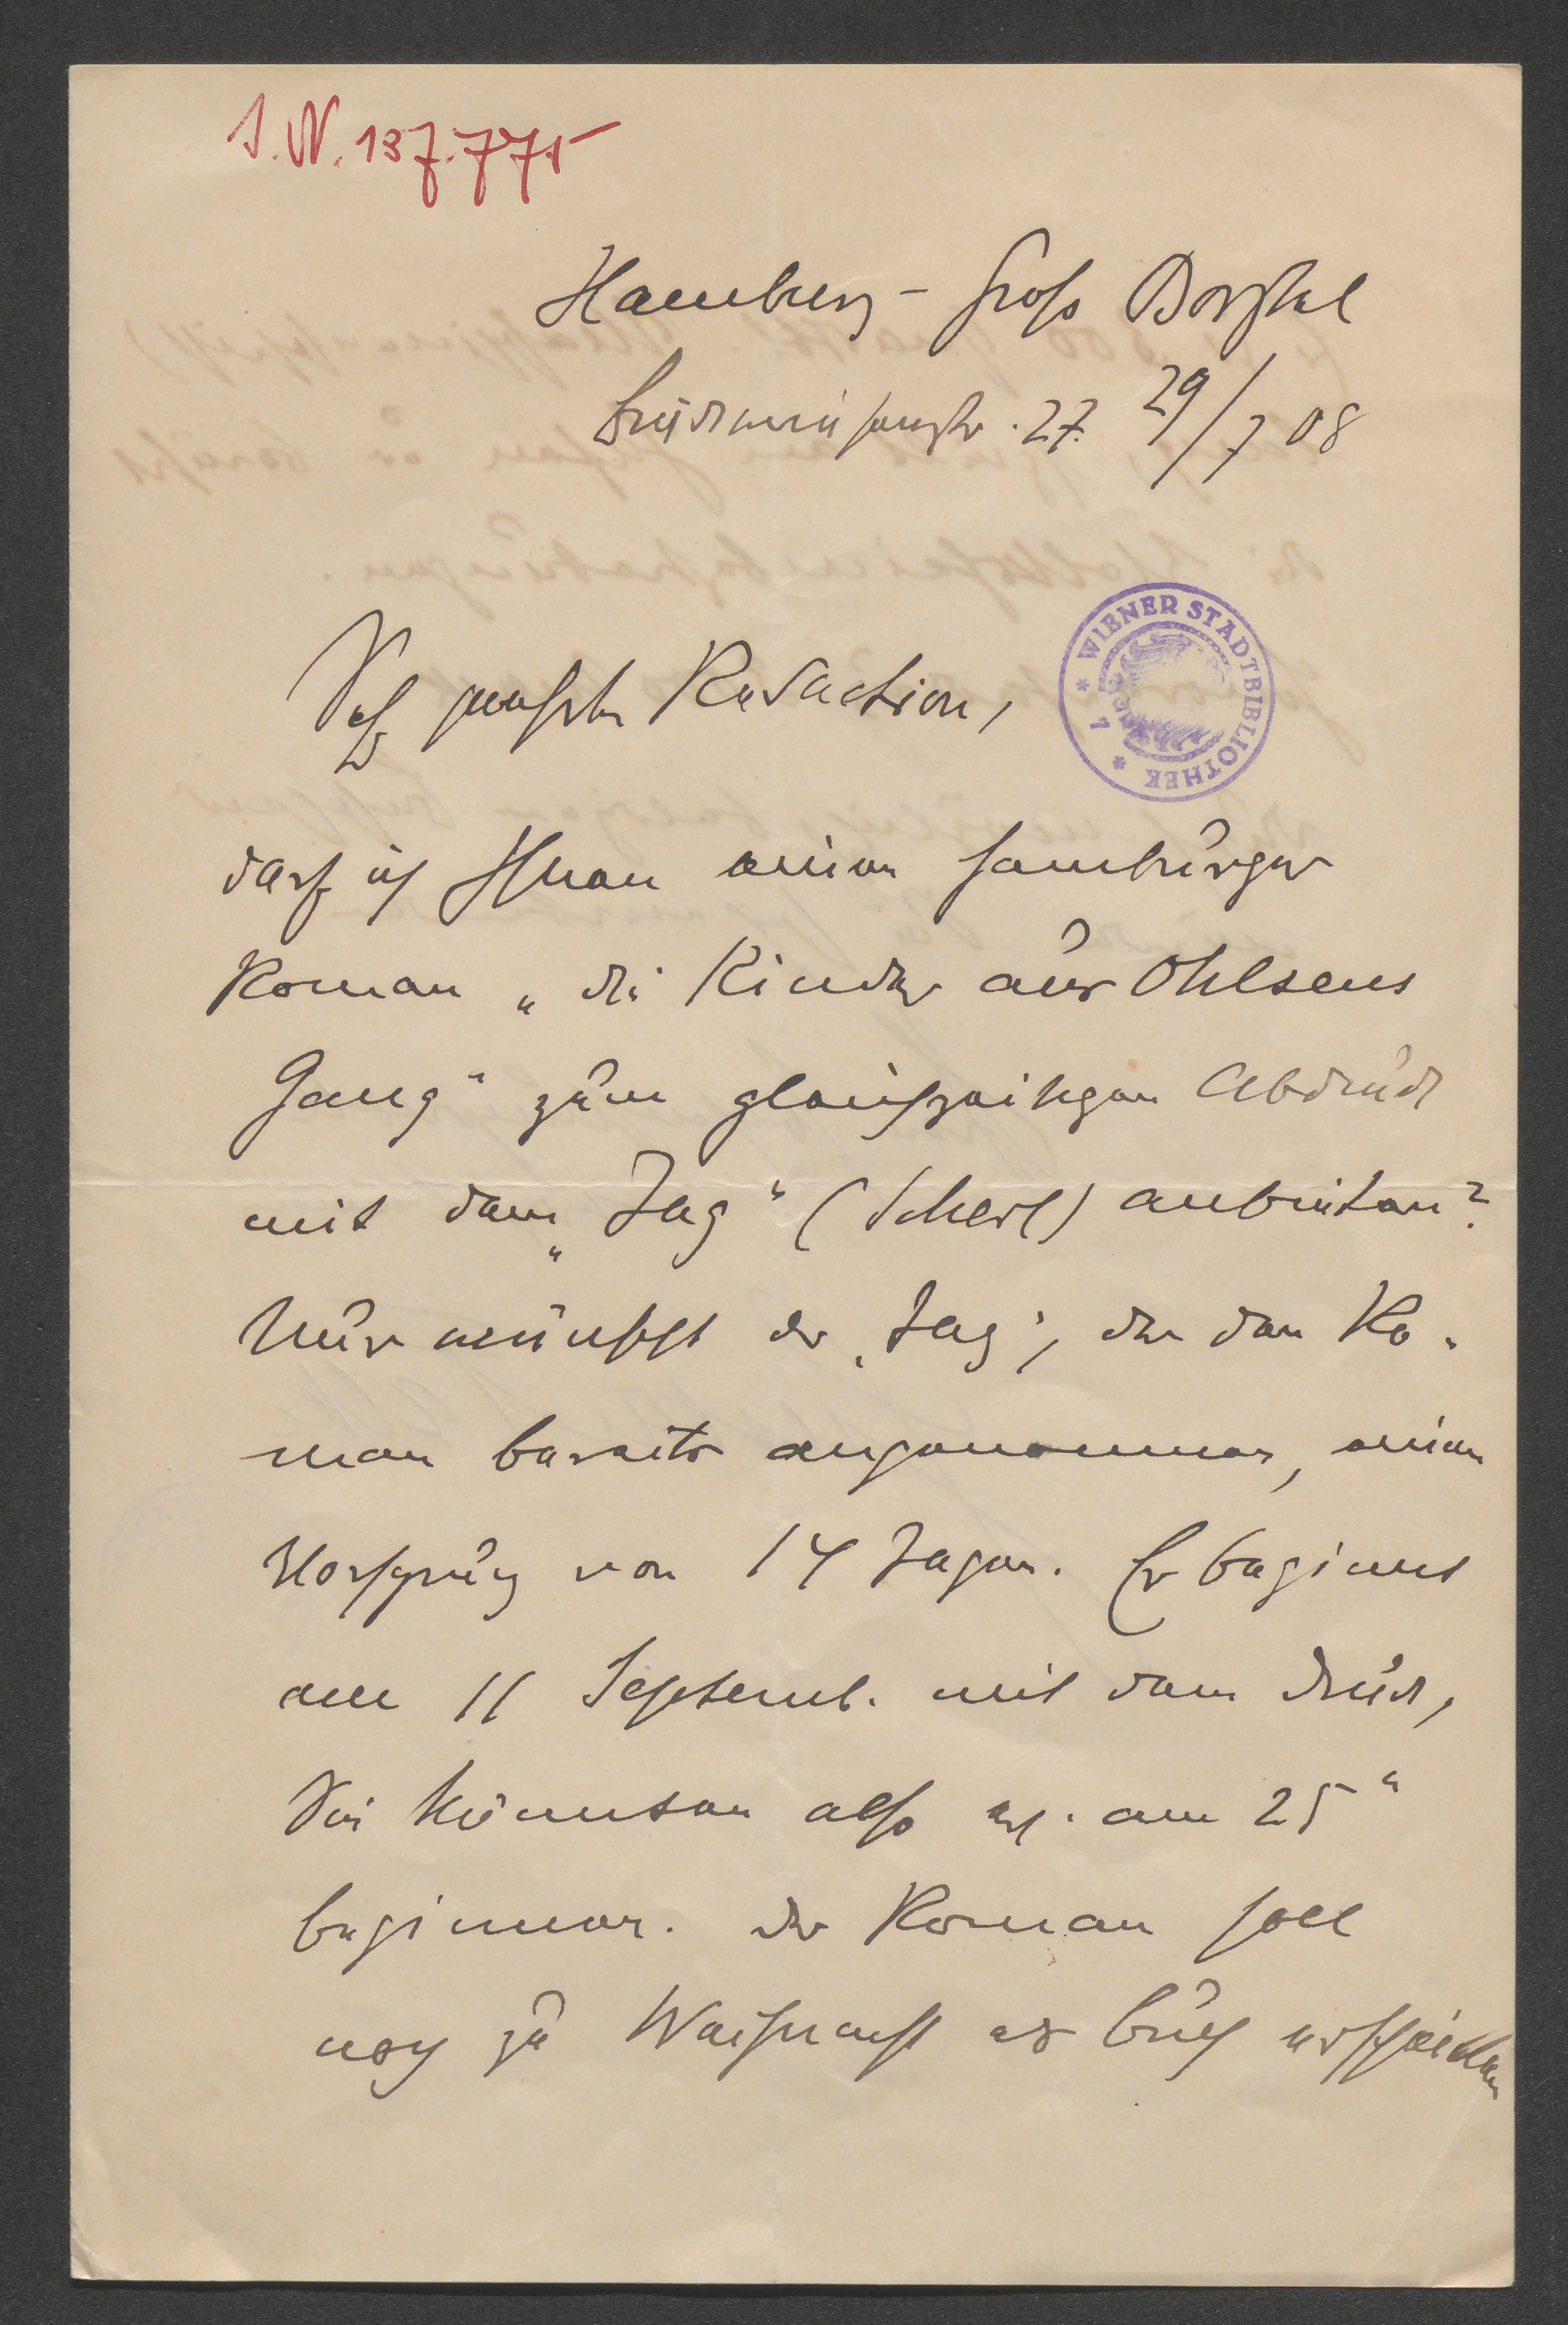 I.N. 137.775
Hamburg - Gross Borstel
Brückwiesenstr. 27. 29/7 08
WIENER STADTBIBLIOTHEK
Sehr geehrte Redaction,
darf ich Ihnen einen hamburger
Roman „die Kinder aus Ohlsens
Gang" zum gleichzeitigen Abdruck
mit dem „Tag" (Scherl) anbieten?
Nur wünscht der „Tag", der den Ro-
man bereits angenommen, einen
Vorsprung von 14 Tagen. Er beginnt
am 11 Septemb. mit dem Druck,
Sie könnten also am 25"
beginnen. der Roman soll
noch zu Weihnacht als Buch erscheinen